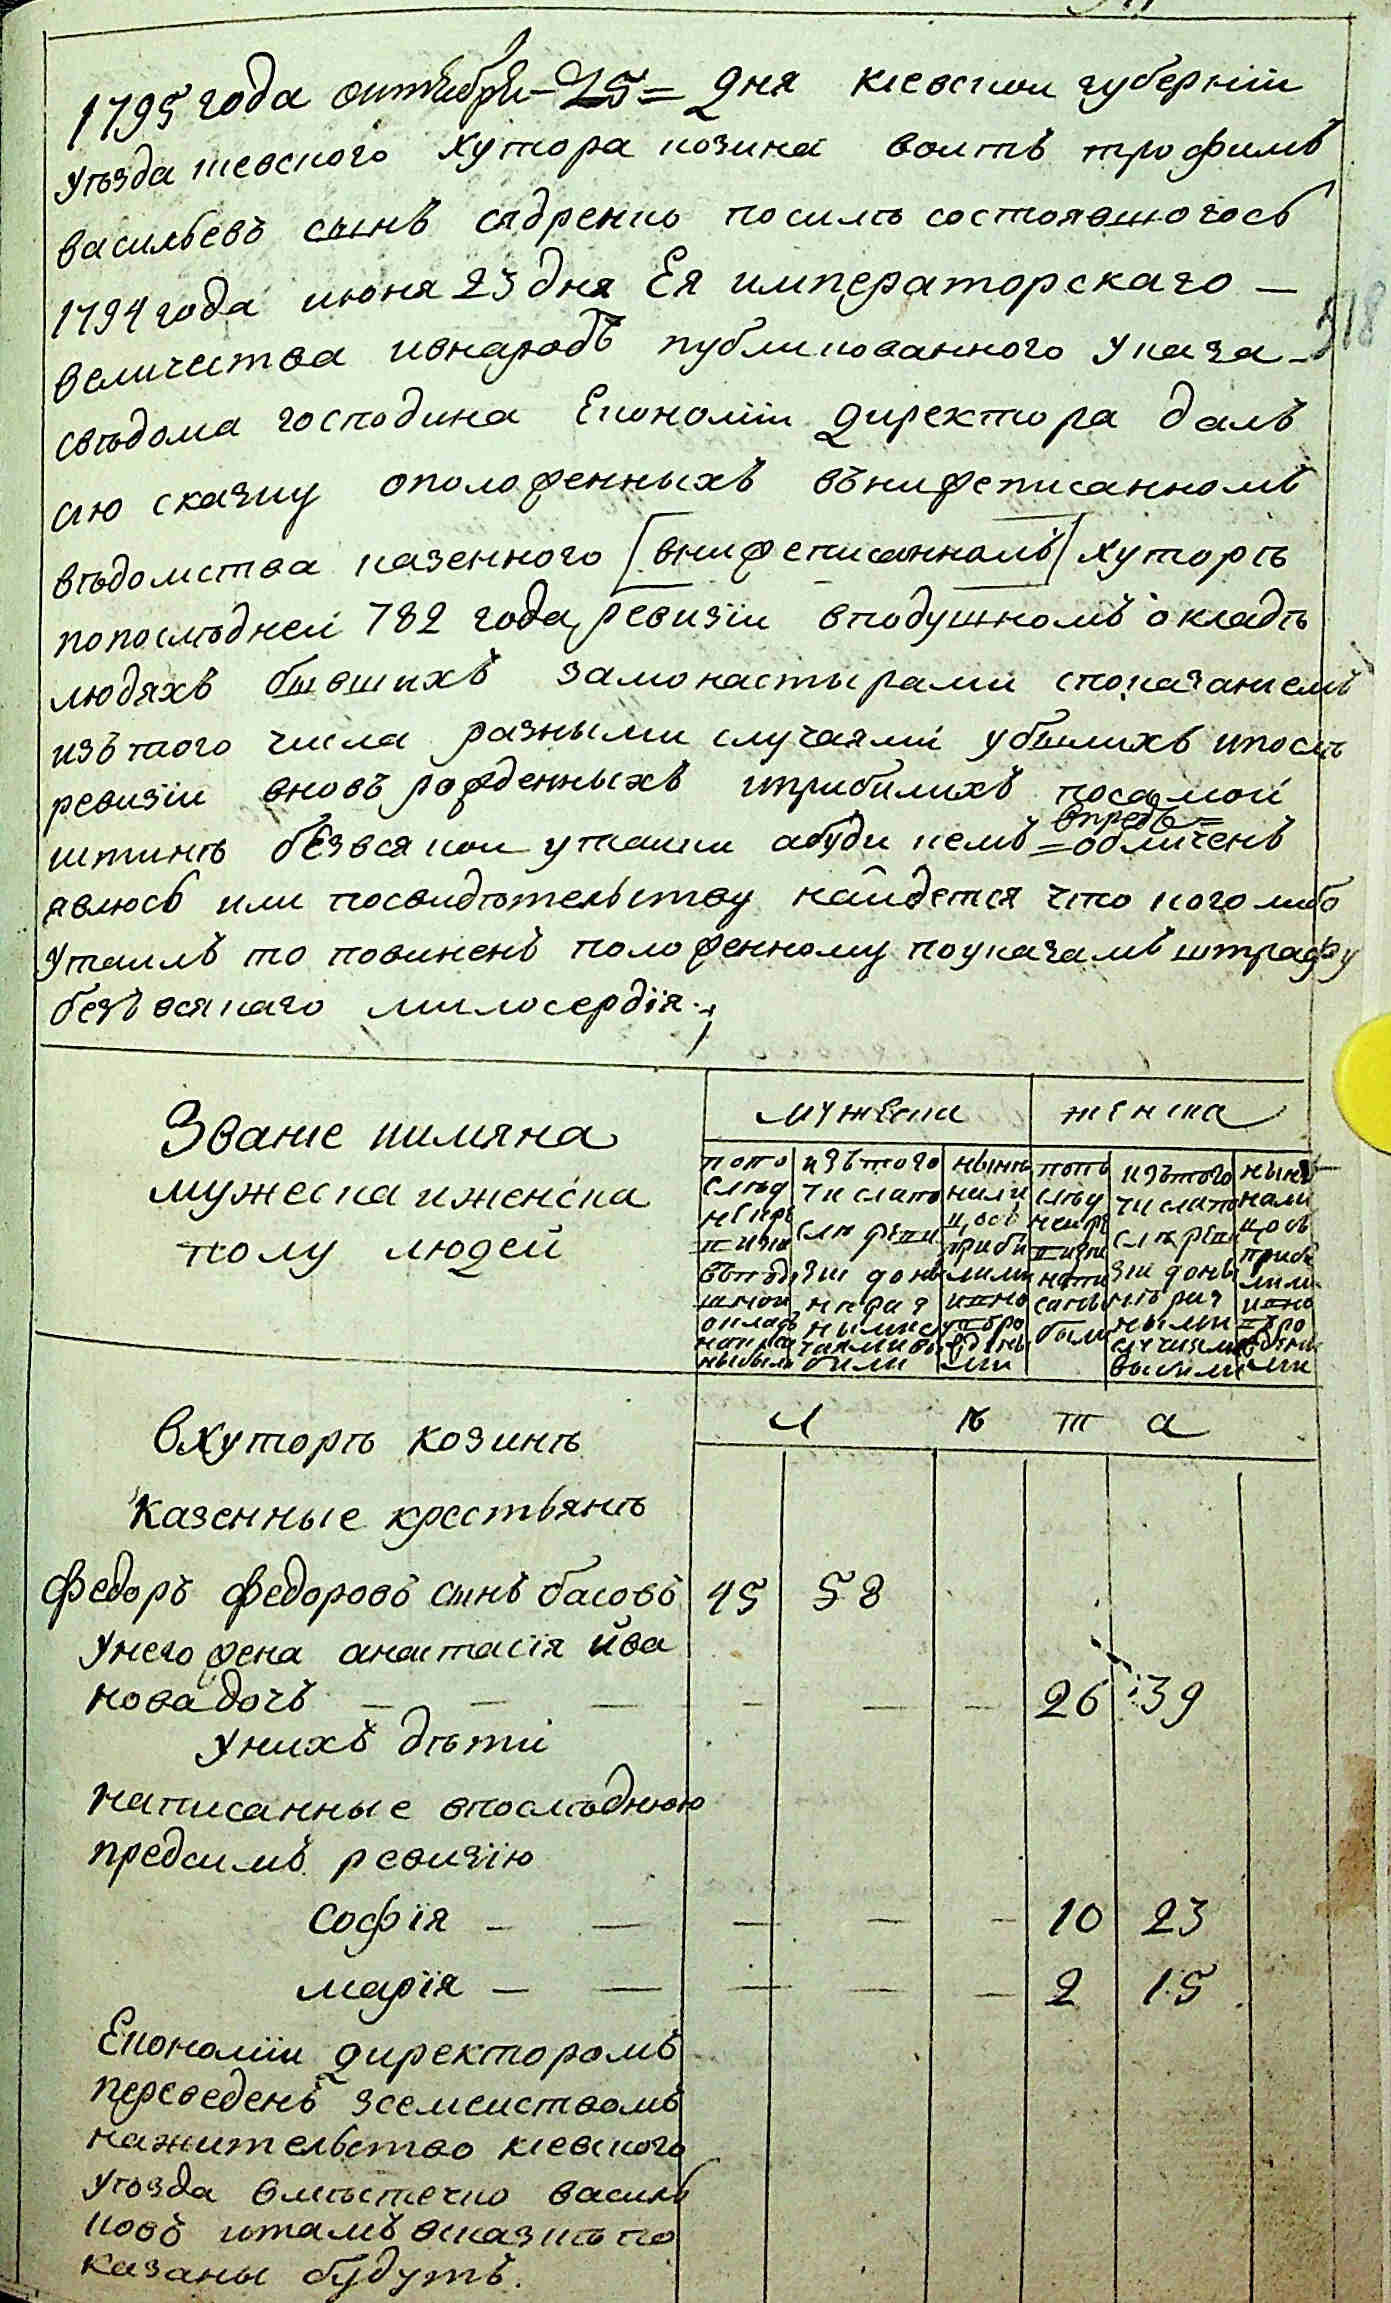 1795 года октября 25 = дня киевской губернїи
уѣзда киевского хутора козина воитъ трофимъ
васильевъ сынъ сидренко посилѣ состоявшогось
1794 года июня 23 дня Ея императорскаго —
величества ивнародъ публикованного указа
свѣдома господина Економїи директора далъ
сию сказку оположенныхъ вънижеписанномъ
вѣдомства казенного [внижеписанномъ] хуторѣ
попослѣдней 782 года ревизїи вподушномъ окладѣ
людяхъ бывшихъ замонастырами споказаниемъ
изътого числа разными случаями убылихъ ипослѣ
ревизїи вновъ рожденныхъ иприбилихъ посамой
впредъ =
истинѣ безвсякои утаики абуди кемъ = обличенъ
явлюсь или посвидѣтельству найдется что кого либо
утаилъ то повиненъ положенному поуказамъ штрафу
безъ всякаго милосердїя.
Званїе иимяна
мужеска иженска
полу людей
мужеска
женска
попо слѣд ней ре визїи въподу шном окладѣ написа ны были
изътого числа по слѣ реви зїи до ны нѣ раз ными слу чаями вы били
нынѣ нали цо съ приби лими ино во ро ждены ми
попо слѣд ней ре визїи напи саны были
изътого числа по слѣ реви зїи до ны нѣ раз ными случаями выбили
нынѣ нали цо съ приби лими ино во ро жденны ми
л ѣ т а
вхуторѣ козинѣ
казенные крестьянѣ
федоръ федоровъ сынъ басовъ 45 58
унего жена анастасїя ива
нова дочъ — — — — — — 26 39
унихъ дѣти
написанные впослѣднюю
предсимъ ревизїю
софїя — — — — — 10 23
марїя — — — — — 2 15
Економїи директоромъ
переведенъ зсемеиствомъ
нажительство киевского
уѣзда вмѣстечко василь
ковъ итамъ всказкѣ по
казаны будутъ.